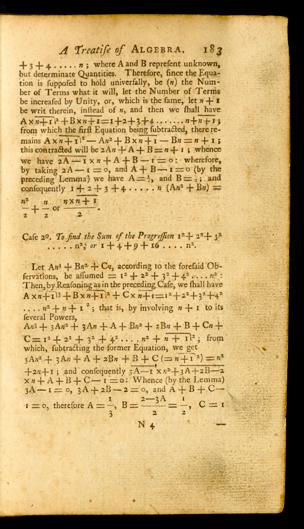 A Treatise of ALGEBRA. 183
+3+4 . . . . . n; where A and B represent unknown,
but determinate Quantities. Therefore, since the Equa-
tion is supposed to hold universally, be (n) the Num-
ber of Terms what it will, let the Number of Terms
be increased by Unity, or, which is the same, let n+1
be writ therein, instead of n, and then we shall have
A×n+1|²+B×n+1=1+2+3+4 . . . . . . n+n+1;
from which the first Equation being subtracted, there re-
mains A×n+1|² — An² + B×n+1 — Bn = n+1;
this contracted will be 2An + A + B = n+1; whence
we have 2A—1 × n + A + B — 1 = 0: wherefore,
by taking 2A—1 = 0, and A + B — 1 = 0 (by the
preceding Lemma) we have A=½, and B=½; and
consequently 1+2+3+4 . . . . . n (An² + Bn) =
n²/2 + n/2 or n×n+1/2.
Case 2°. To find the Sum of the Progression 1²+2²+3²
. . . . . n²; or 1+4+9+16 . . . . n².
Let An³ + Bn² + Cn, according to the foresaid Ob-
servations, be assumed = 1² + 2² + 3² + 4² . . . . n²:
Then, by Reasoning as in the preceding Case, we shall have
A×n+1|³+B×n+1|²+C×n+1=1²+2²+3²+4²
. . . . n² + n+1|²; that is, by involving n+1 to its
several Powers,
An³ + 3An² + 3An + A + Bn² + 2Bn + B + Cn +
C = 1² + 2² + 3² + 4² . . . . n² + n+1|²; from
which, subtracting the former Equation, we get
3An² + 3An + A + 2Bn + B + C (= n+1|²) = n²
+2n+1; and consequently 3A—1 × n²+3A+2B—2
×n + A + B + C — 1 = 0: Whence (by the Lemma)
3A — 1 = 0, 3A + 2B — 2 = 0, and A + B + C —
1 = 0, therefore A = 1/3, B = 2—3A/2 = 1/2, C = 1
N 4 —